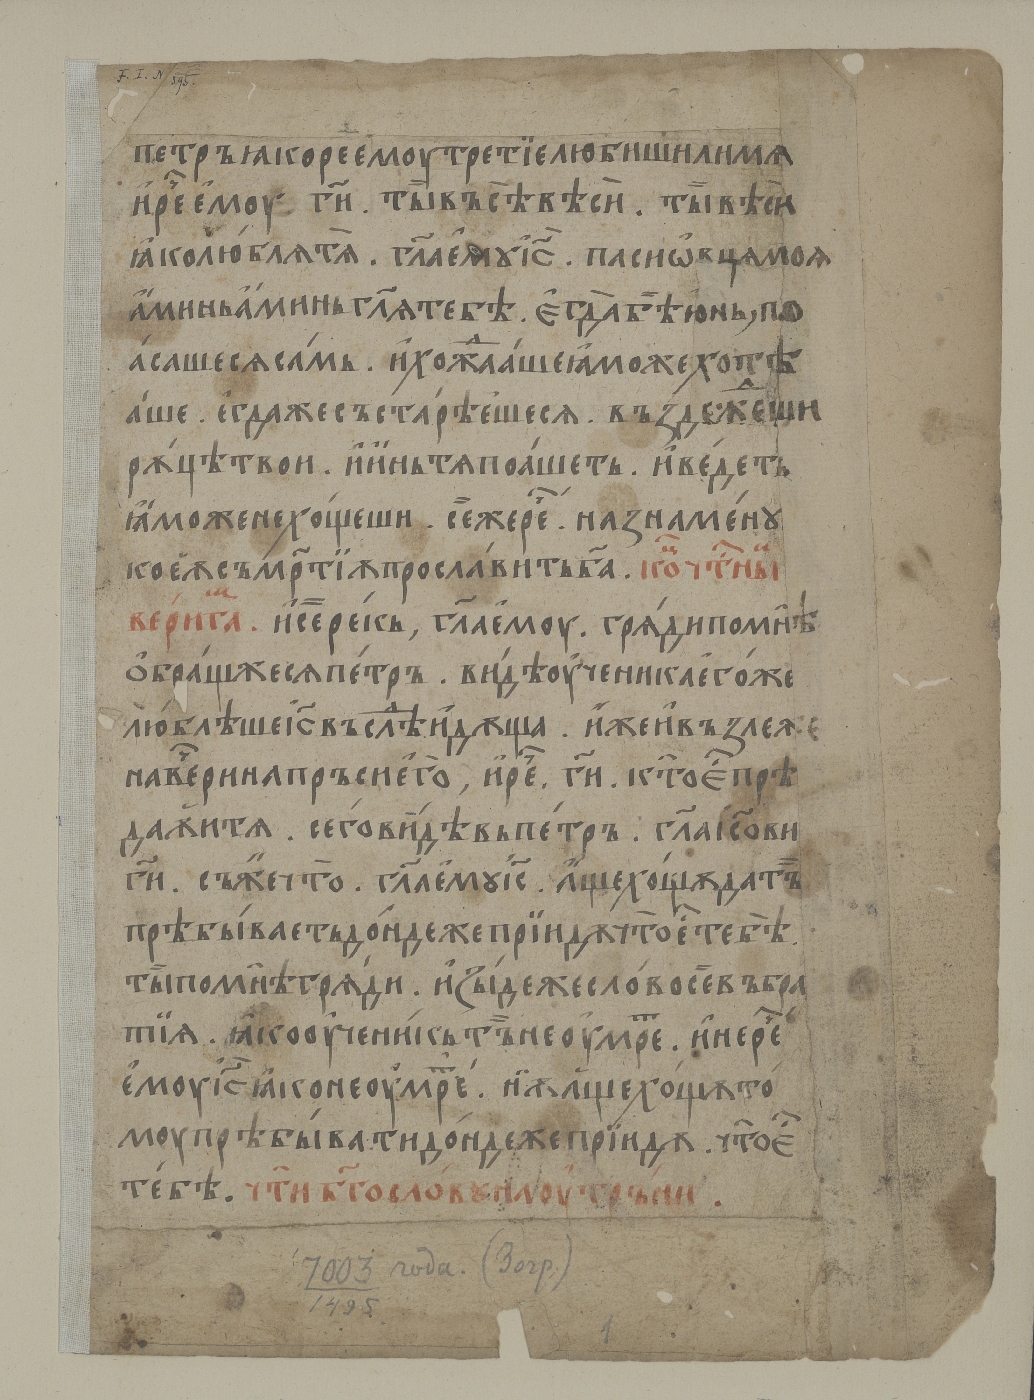 F. I. N 595.
петръ ꙗко рее́моу третїе любишилимѧ
и҆ре҆ е҆моу ги҃. ты̀ въсѣ вѣси. ты̀ вѣси
ꙗ҆ко лю́блятѧ. гл҃ае҆мꙋ і҆с҃. паси ѡ҆вцѧ моѧ
а҆минь а҆минь гл҃ѧ тебѣ. є҆гда̀ бѣ ю҆нь, по
ꙗ́сашесѧ са́мь. и҆ хожда́аше ꙗ҆може хотѣ
а́ше. є҆гдаже състарѣ́ешесѧ. въздежеши
рѫ́цѣ твои. и҆ и҆нь тѧ поꙗ́шеть. и҆ веде́ть
ꙗ҆може не хо́щеши. се́же ре҆. назнаме́нꙋ
кое́ѫ съмр҃тїѫ просла́вить ба҃. ко чт҃ны
вери́га. и҆ се́ рекь, гл҃а е҆моу. грѧди по мнѣ
ѻ҆бра́щжесѧ пе́тръ. ви́дѣ оу҆ченика е҆го́же
лю́блѣше і҆с҃ въ слѣд и҆дѫща. и҆же и҆ възлеже
на вечери на пръси е҆го̀, и҆ ре҆. ги҃. кто̀ є҆ прѣ
даѧ́и тѧ. сего ви́дѣвь пе́тръ. гл҃а і҆сови
ги҃. съ́же что̀. гл҃а е҆мꙋ і҆с҃. а҆ще хощѫ да тъ̀
прѣбы́ваеть до́ндеже прїидѫ что̀ є҆ тебѣ̀.
ты̀ по мнѣ грѧ́ди. и҆зы́деже сло́во се въ бра
тїѧ. ꙗ҆ко оу҆чени́кь тъ̀ не оу҆мре. и҆ не ре҆
е҆моу і҆с҃ ꙗ҆ко не оу҆мре́. нѫ а҆ще хощѫ то
моу прѣбы́вати до́ндеже прїидѫ. что̀ є҆
те́бѣ. чти҃ бг҃ослову и҆моу тръни.
7003 года. (Зогр.)
1495
1